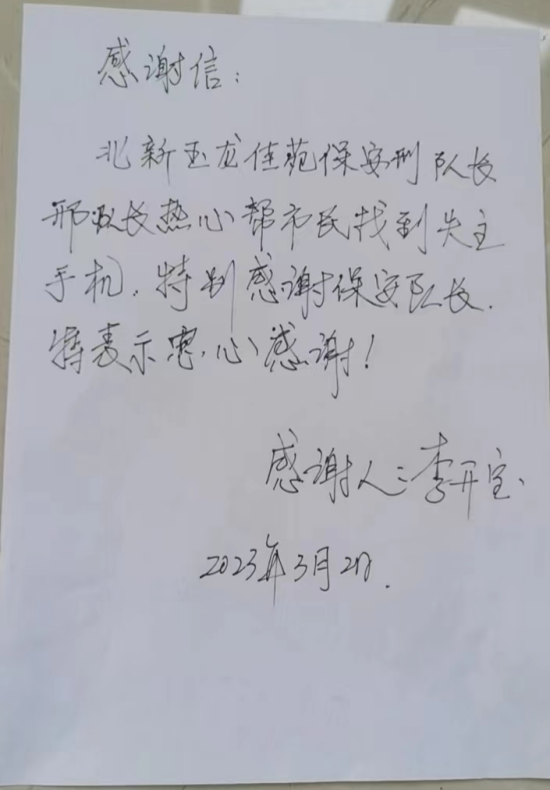 感谢信：
北新玉龙佳苑保安刑队长
邢队长热心帮市民找到失主
手机，特别感谢保安队长．
特表示衷心感谢！
感谢人：李开宝．
2023年3月2日．